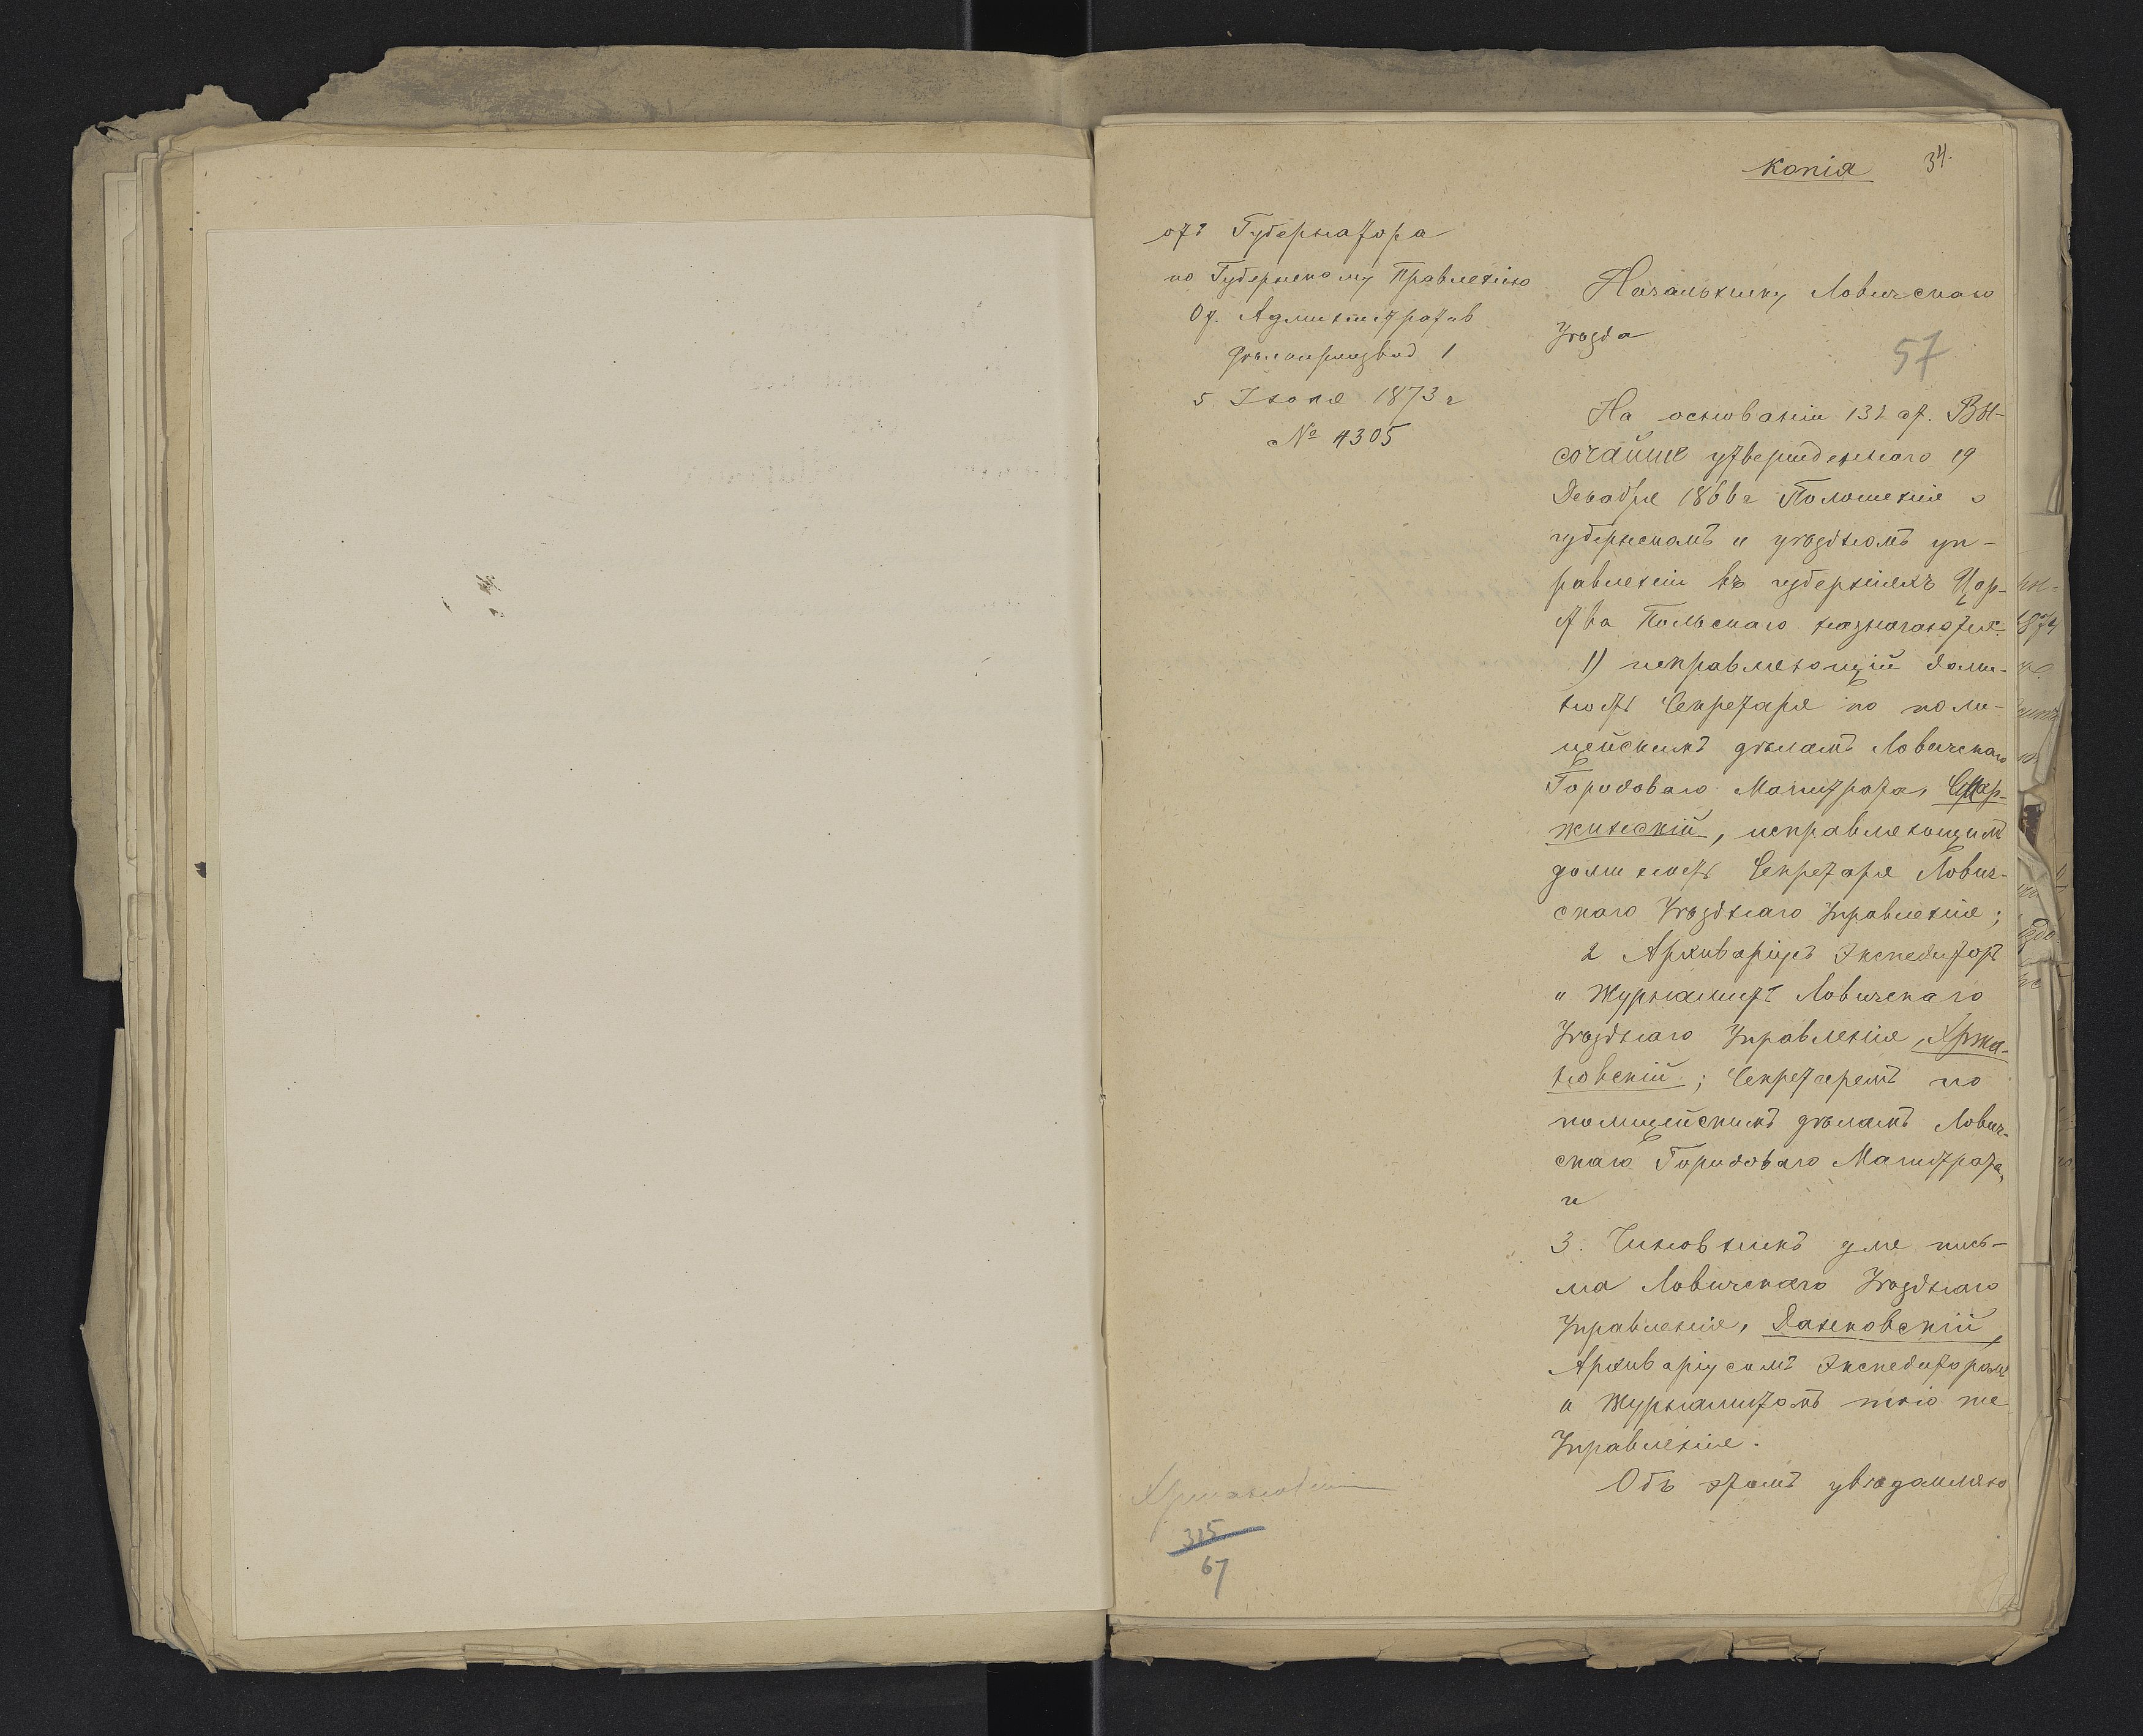 Копія 34.
отъ Губернатора
по Губернскому Правленію
От. Административ
Дѣлопроизвод 1
5 Іюня 1873 г
№ 4305
Начальнику Ловичскаго
Уѣзда
57
На основаніи 132 ст. Вы-
сочайше утвержденнаго 19
Декабря 1866 г Положенія о
губернскомъ и уѣздномъ уп-
равленіи въ губерніяхъ Цар-
ства Польскаго назначаются:
1) исправляющій долж-
ность Секретаря по поли-
цейскимъ дѣламъ Ловичскаго
Городоваго Магистрата,
жинскій, исправляющимъ
должность Секретаря Лович-
скаго Уѣзднаго Управленія;
2 Архиваріусъ Экспедиторъ
и Журналистъ Ловичскаго
Уѣзднаго Управленія, Хржа-
новскій; Секретаремъ по
полицейскимъ дѣламъ Лович-
скаго Городоваго Магистрата,
и
3. Чиновникъ для пись-
ма Ловичскаго Уѣзднаго
Управленія, Данковскій,
Архиваріусомъ Экспедиторомъ
и Журналистомъ того же
Управленія.
Объ этомъ увѣдомляю
Хржановскій
315
67